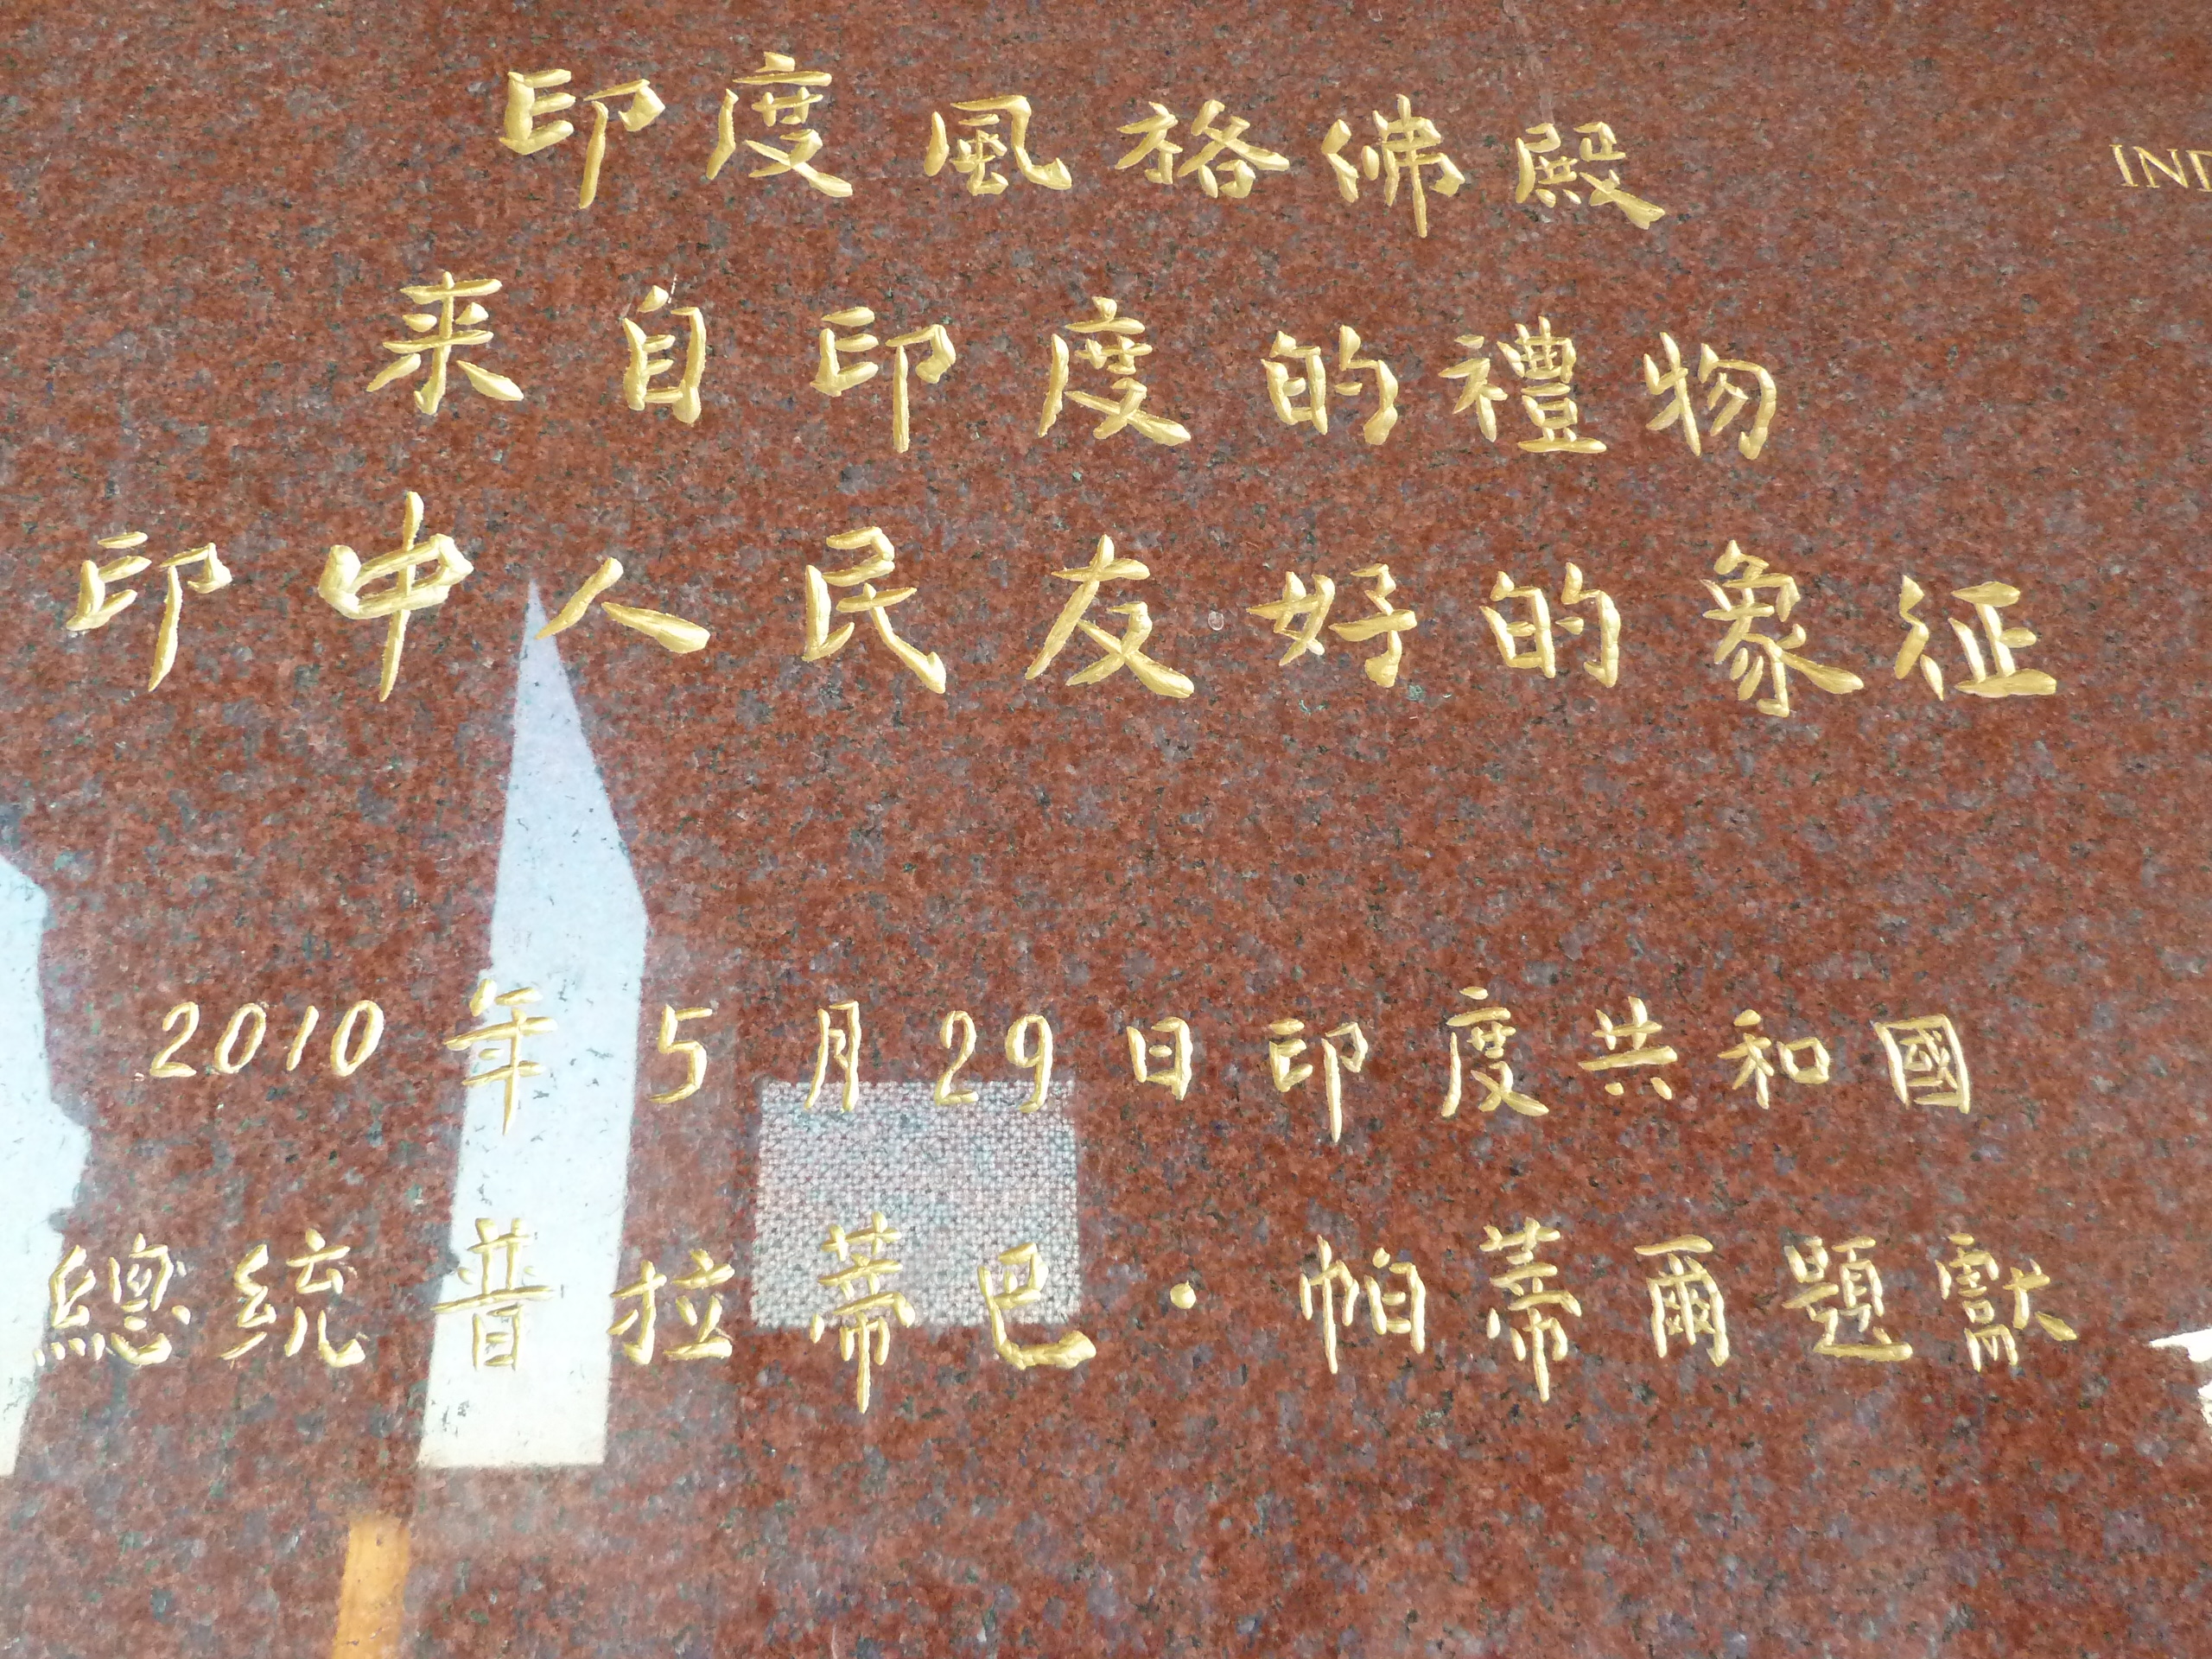 印度風格佛殿
来自印度的禮物
印中人民友好的象征
2010年5月29日印度共和國
總統普拉蒂巴·帕蒂爾題獻